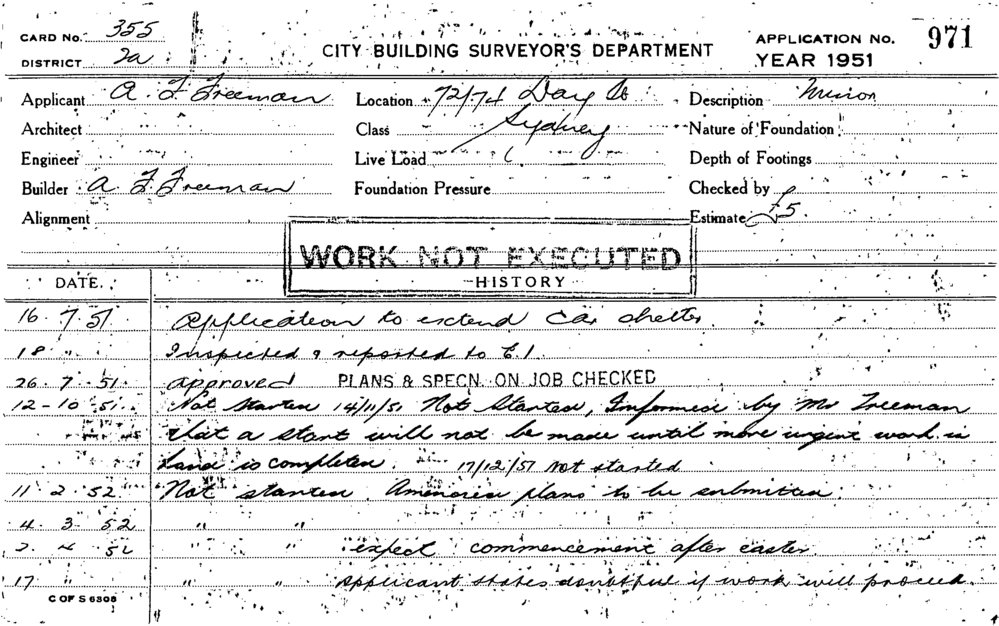 CARD No. 355
DISTRICT 2a
CITY BUILDING SURVEYOR'S DEPARTMENT
APPLICATION No. 971
YEAR 1951
Applicant A. F. Freeman
Location 72/74 Day St
Sydney
Description Minor
Architect
Class
Nature of Foundation
Engineer
Live Load
Depth of Footings
Builder A. F. Freeman
Foundation Pressure
Checked by
Alignment
Estimate £5.
WORK NOT EXECUTED
DATE.
HISTORY
16. 7 51 Application to extend car shelter
18 " Inspected & reported to E.1.
26. 7. 51 approved PLANS & SPECN. ON JOB CHECKED
12-10 51 Not started 14/11/51 Not Started, Informed by Mr Freeman
that a start will not be made until more urgent work in
hand is completed. 17/12/51 not started
11 2 52 Not started. Amended plans to be submitted.
4. 3. 52 " "
2 4 52 " " expect commencement after easter
17 " " " applicant states doubtful if work will proceed.
C OF S 6305